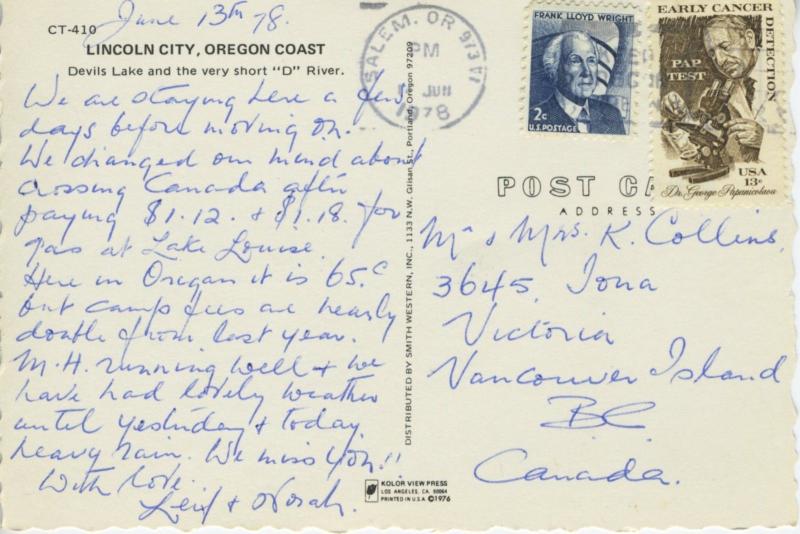 June 13th 78.
CT-410
LINCOLN CITY, OREGON COAST
Devils Lake and the very short "D" River.
We are staying here a few
days before moving on.
We changed our mind about
crossing Canada after
paying $1.12. & $1.18. for
gas at Lake Louise.
Here in Oregon it is 65.c
but camp fees are nearly
double from last year.
M.H. running well & we
have had lovely weather
until yesterday & today
heavy rain. We miss you!!
With love
Leif & Norah.
DISTRIBUTED BY SMITH WESTERN, INC., 1133 N.W. Glisan St., Portland, Oregon 97209
KOLOR VIEW PRESS
LOS ANGELES, CA. 90064
PRINTED IN U.S.A. ©1976
SALEM, OR 973
PM
JUN
1978
FRANK LLOYD WRIGHT
2c
U.S. POSTAGE
EARLY CANCER
DETECTION
PAP
TEST
USA
13c
Dr. George Papanicolaou
POST CA
ADDRESS
Mr & Mrs. K. Collins,
3645, Iona
Victoria
Vancouver Island
BC
Canada.